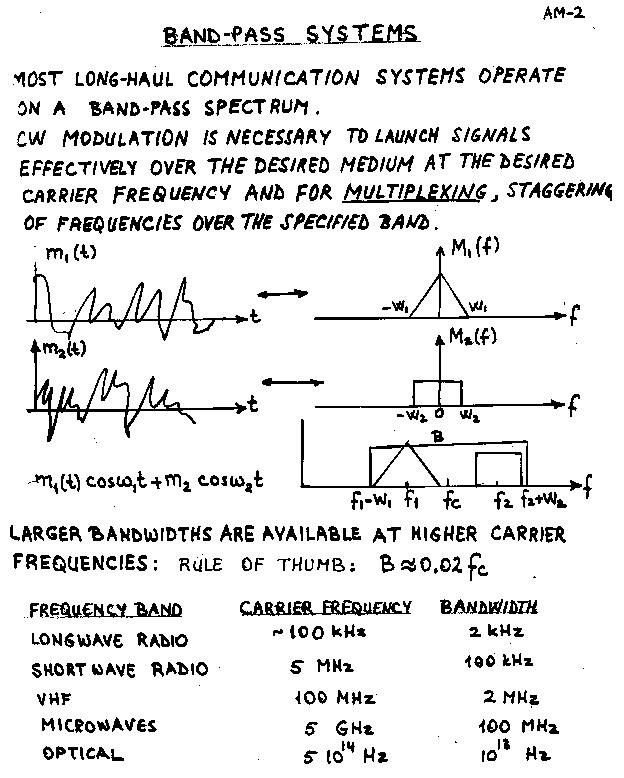 AM-2
BAND-PASS SYSTEMS
MOST LONG-HAUL COMMUNICATION SYSTEMS OPERATE
ON A BAND-PASS SPECTRUM.
CW MODULATION IS NECESSARY TO LAUNCH SIGNALS
EFFECTIVELY OVER THE DESIRED MEDIUM AT THE DESIRED
CARRIER FREQUENCY AND FOR MULTIPLEXING, STAGGERING
OF FREQUENCIES OVER THE SPECIFIED BAND.
m₁(t)
M₁(f)
-W₁ W₁
t
f
m₂(t)
M₂(f)
t
-W₂ 0 W₂
f
B
m₁(t) cosω₁t + m₂ cosω₂t
f₁-W₁ f₁ fc f₂ f₂+W₂ f
LARGER BANDWIDTHS ARE AVAILABLE AT HIGHER CARRIER
FREQUENCIES: RULE OF THUMB: B≈0.02 fc
FREQUENCY BAND CARRIER FREQUENCY BANDWIDTH
LONGWAVE RADIO ~100 kHz 2 kHz
SHORT WAVE RADIO 5 MHz 100 kHz
VHF 100 MHz 2 MHz
MICROWAVES 5 GHz 100 MHz
OPTICAL 5 10¹⁴ Hz 10¹³ Hz